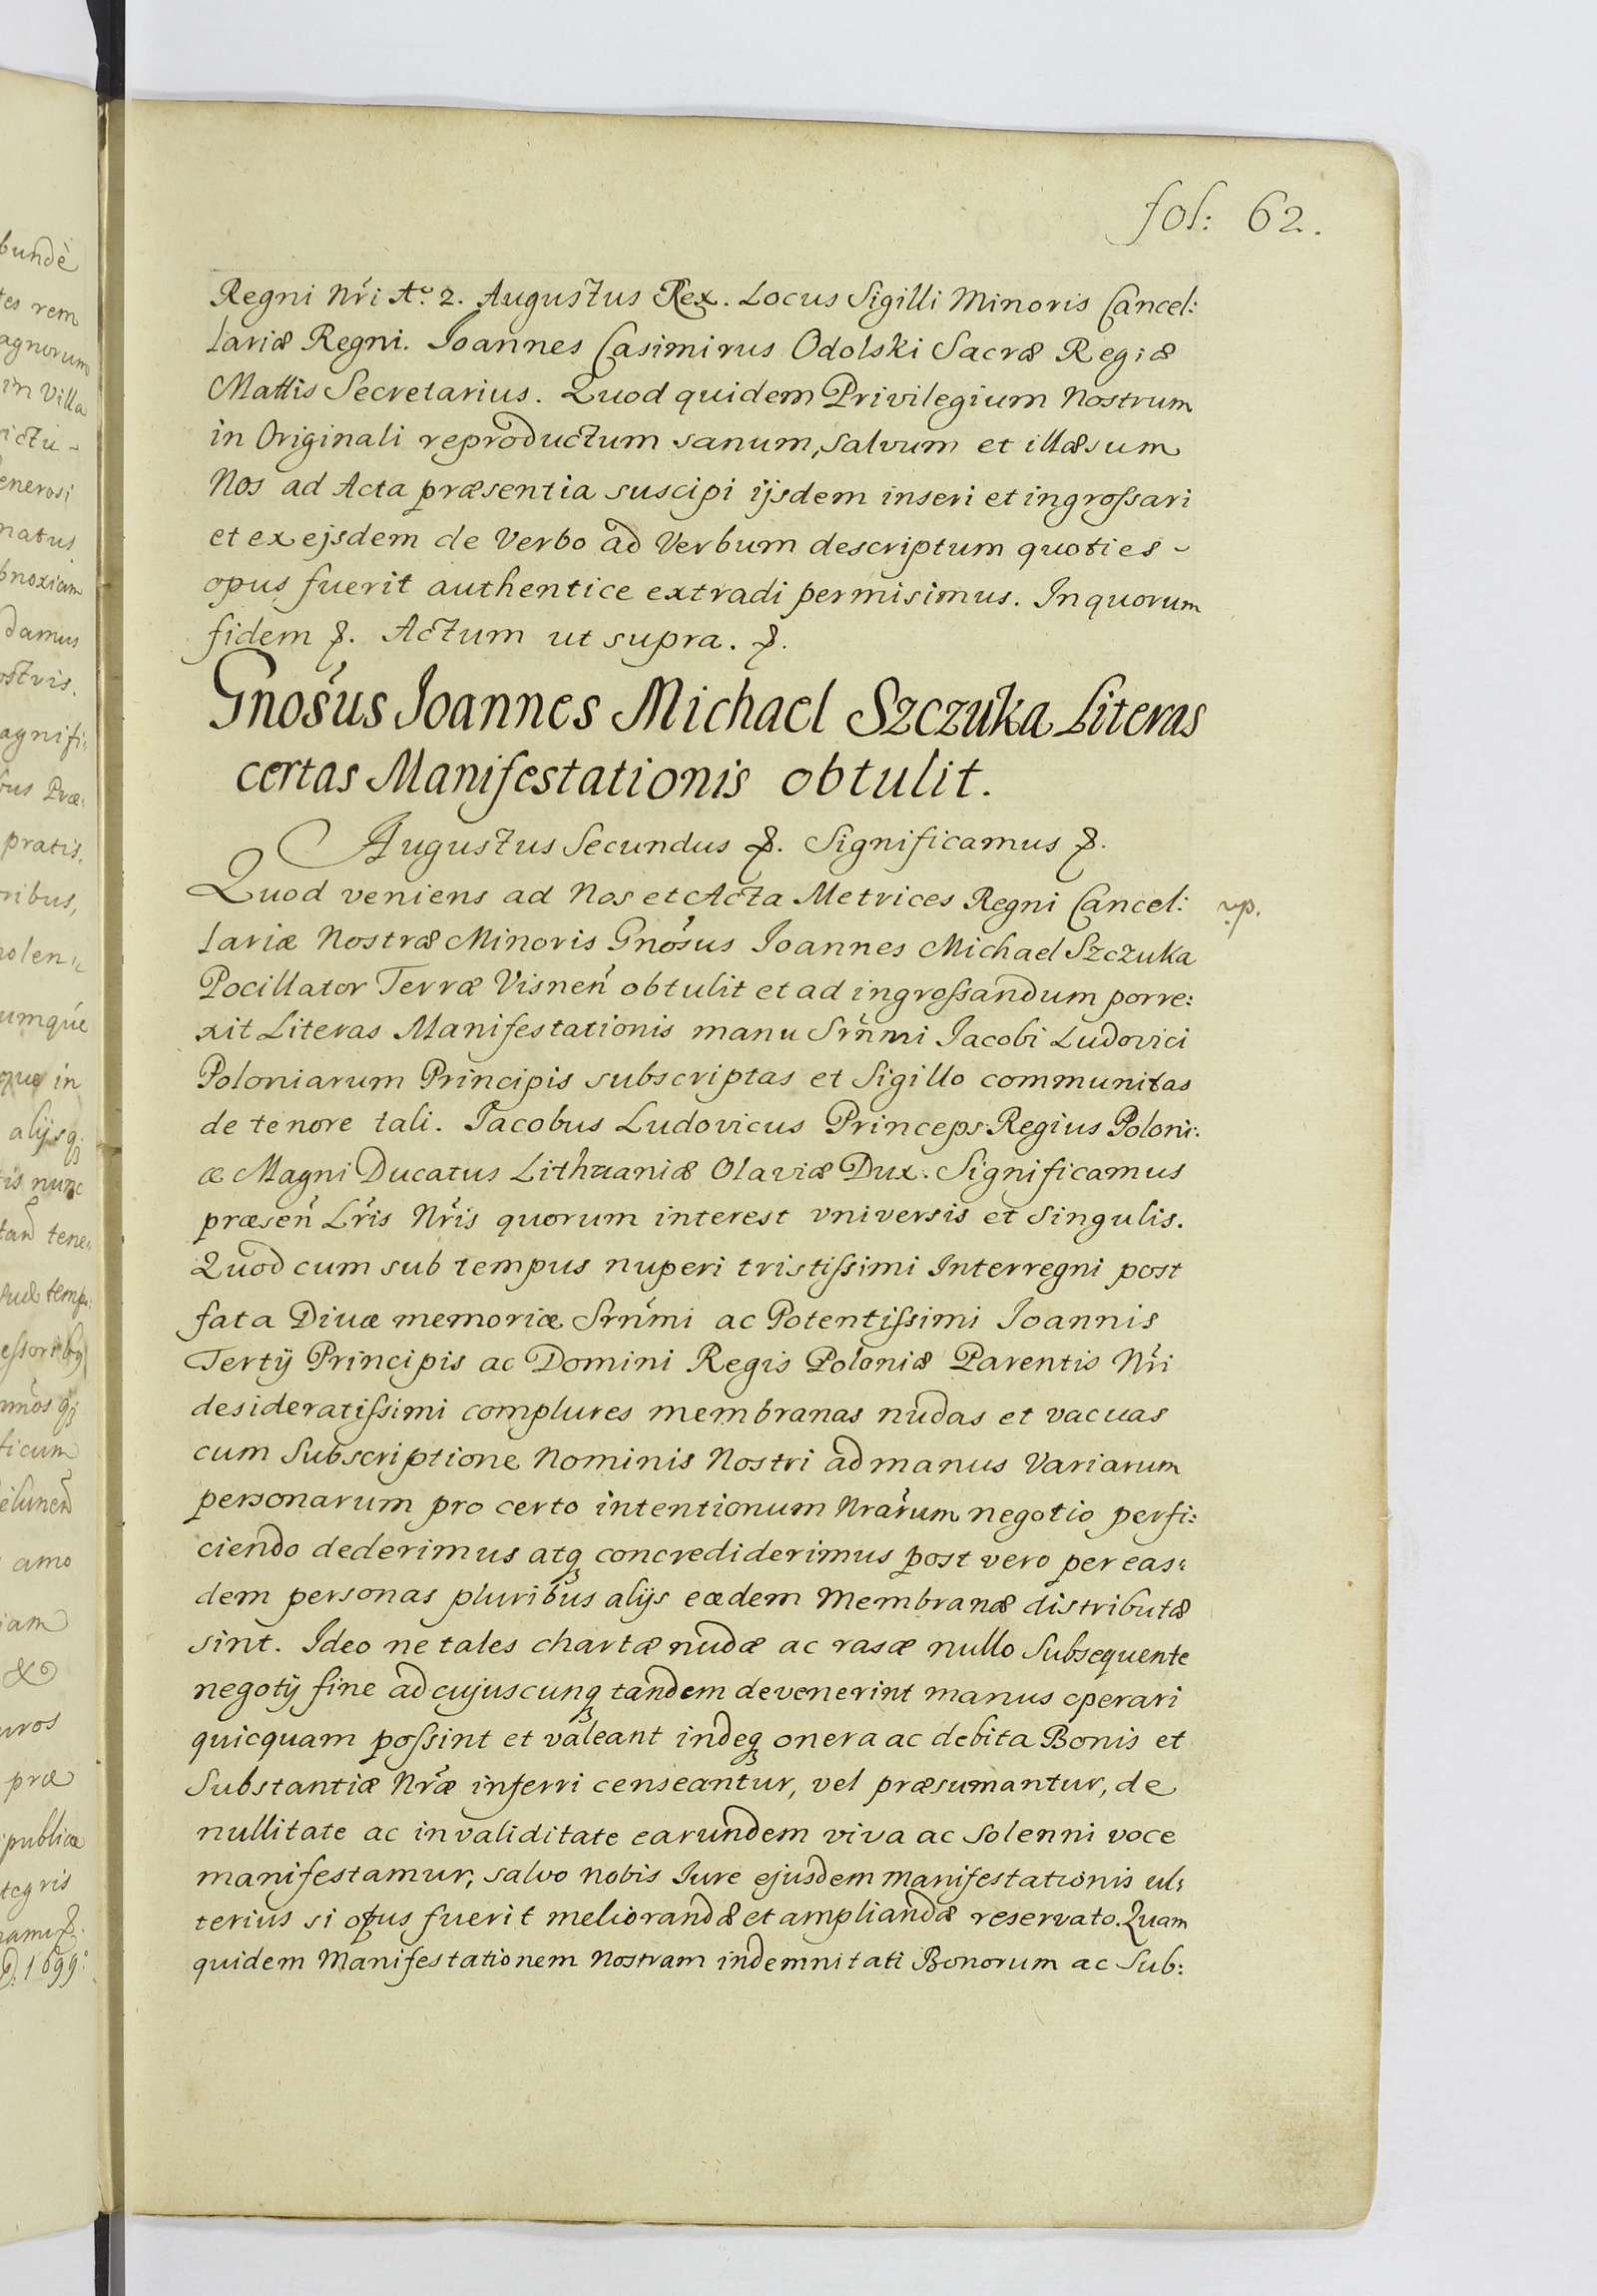 fol: 62.
Regni Nři Aº. 2. Augustus Rex. Locus Sigilli Minoris Cancel:
lariæ Regni. Joannes Casimirus Odolski Sacræ Regiæ
Mattis Secretarius. Quod quidem Privilegium Nostrum
in Originali reproductum sanum, salvum et illæsum
Nos ad Acta præsentia suscipi ijsdem inseri et ingrossari
et ex ejsdem de Verbo ad Verbum descriptum quoties -
opus fuerit authentice extradi permisimus. In quorum
fidem &. Actum ut supra. &.
Gnosus Joannes Michael Szczuka Literas
certas Manifestationis obtulit.
Augustus Secundus &. Significamus &.
Quod veniens ad Nos et Acta Metrices Regni Cancel:
lariæ Nostræ Minoris Gnosus Joannes Michael Szczuka
Pocillator Terræ Visneń obtulit et ad ingrossandum porre:
xit Literas Manifestationis manu Srnmi Jacobi Ludovici
Poloniarum Principis subscriptas et Sigillo communitas
de tenore tali. Jacobus Ludovicus Princeps Regius Poloni:
æ Magni Ducatus Lithuaniæ Olaviæ Dux. Significamus
præseń Lřis Nřis quorum interest vniversis et singulis.
Quod cum sub tempus nuperi tristissimi Interregni post
fata Divæ memoriæ Srnmi ac Potentissimi Joannis
Tertij Principis ac Domini Regis Poloniæ Parentis Nři
desideratissimi complures membranas nudas et vacuas
cum Subscriptione Nominis Nostri ad manus Variarum
personarum pro certo intentionum Nrarum negotio perfi:
ciendo dederimus atq concrediderimus post vero per eas:
dem personas pluribus alijs eædem Membranæ distributæ
sint. Ideo ne tales chartæ nudæ ac rasæ nullo Subsequente
negotij fine ad cujuscunq tandem devenerint manus operari
quicquam possint et valeant indeq onera ac debita Bonis et
Substantiæ Nřæ inferri censeantur, vel præsumantur, de
nullitate ac invaliditate earundem viva ac Solenni voce
manifestamur, salvo nobis Iure ejusdem manifestationis ul:
terius si opus fuerit meliorandæ et ampliandæ reservato. Quam
quidem Manifestationem Nostram indemnitati Bonorum ac Sub: